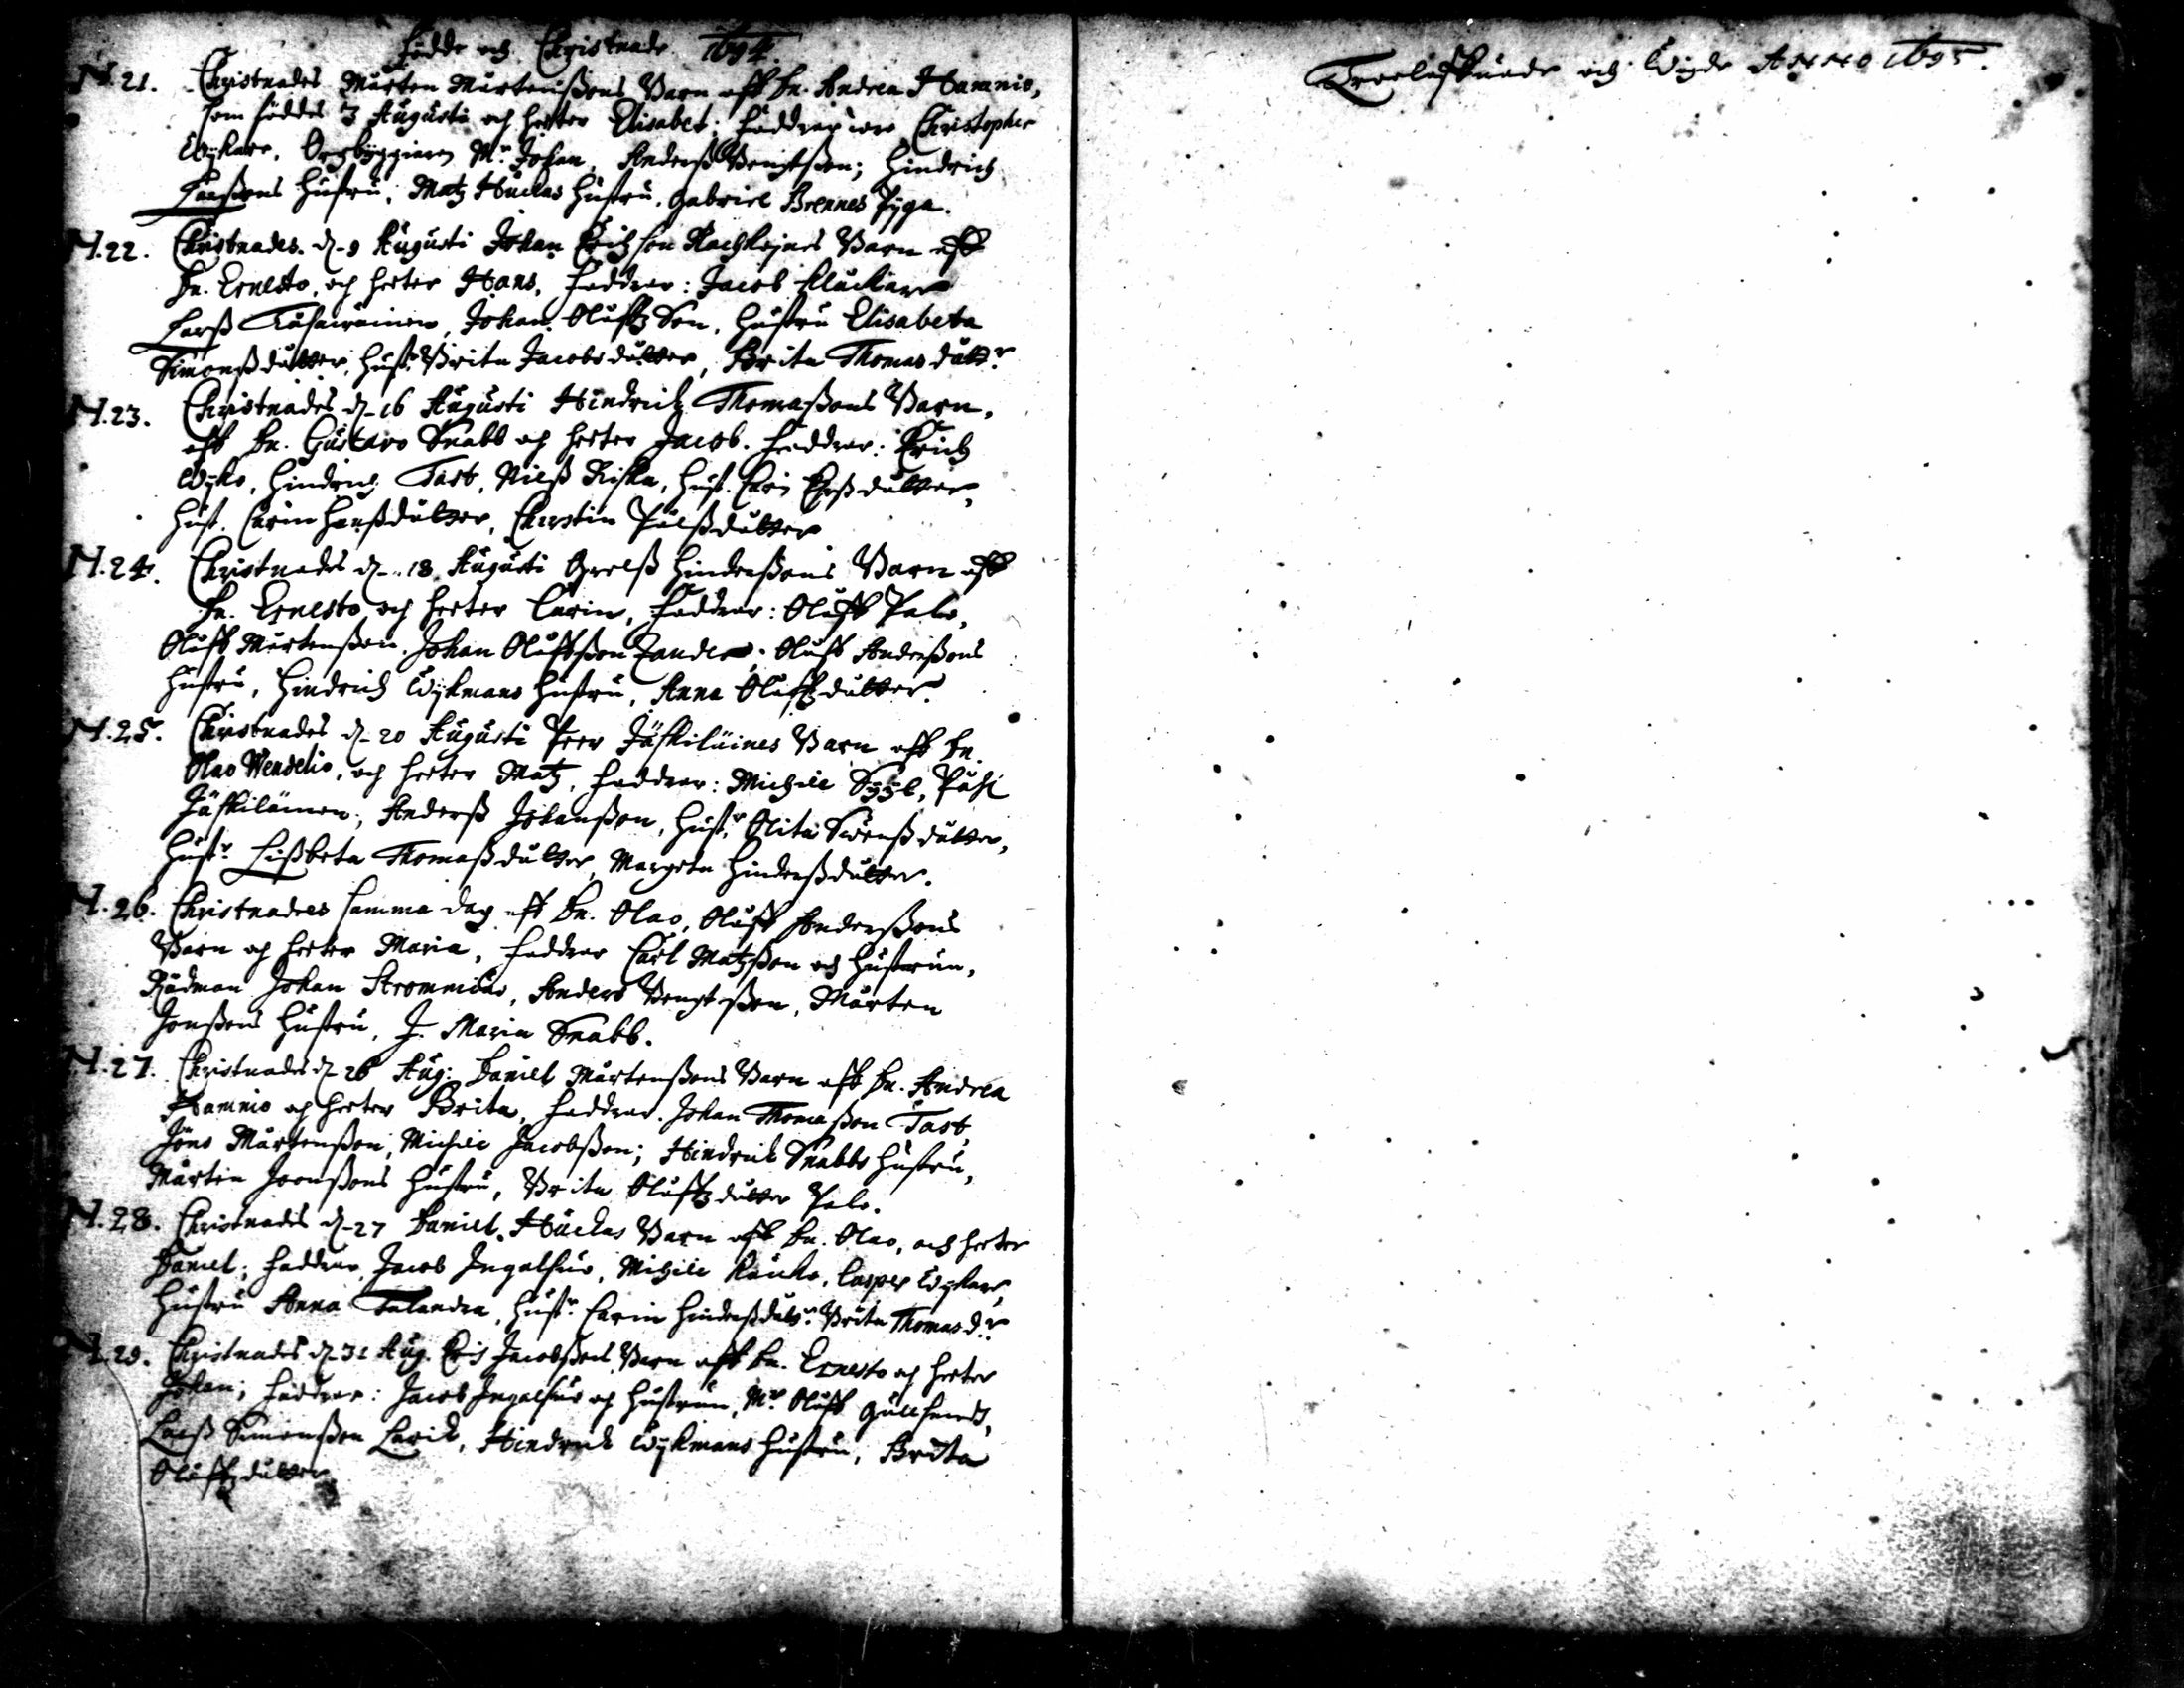 Födde och Christnade 1694.
N. 21. Christnades Mårten Mårtenßons Barn aff Dn. Andrea Hamnio,
som föddes 3 Augusti och heeter Elisabet; Faddrar wro Christopher
Wÿkare, Orgbyggiaren Mr. Johan, Anderß Bengtßon; Hindrich
Larßons Hustru, Matz Huckas Hustru, Gabriel Brennes Pyga.
N. 22. Christnades d. 9 Augusti Johan Erichson Barn aff
Dn. Ernesto, och heeter Hans, Faddrar: Jacob Kluckare
Larß, Johan Oluffz Son, Hustru Elisabeta
Simonßdutter, Hust. Brita Jacobsdutter, Brita Thomas dottr.
N. 23. Christnades d. 16 Augusti Hindrich Thomaßons Barn,
aff Dn. Gustavo Snabb och heeter Jacob. Faddrar: Erich
Wÿko, Hindrich Tast, Nielß Riska, Hust. Carin dutter,
Hust. Carin Hanßdutter, Cherstin Pålßdutter
N. 24. Christnades d. 18 Augusti Grelß Hindrßons Barn aff
Dn. Ernesto och heeter Carin, Faddrar: Oluff Palo,
Oluff Mårtenßon, Johan Oluffßon Zander. Oluff Andrßons
Hustru, Hindrich Wÿkmans Hustru, Anna Oluffzdutter.
N. 25. Christnades d. 20 Augusti Peer Jäskiläines Barn aff Dn.
Olao Wendelio, och heeter Matz, Faddrar: Michill, Påhl
Jäskiläinen, Anderß Johanßon, Hustr. Olita Swenßdutter,
Hustr. Lißbeta Thomaßdutter, Margeta Hindrßdutter.
N. 26. Christnades samma dag aff Dn. Olao, Oluff Anderßons
Barn och heeter Maria, Faddrar Carl Matzßon och Hustrun,
Rådman Johan Stromnius, Anders Bengtßon, Mårten
Jonßons Hustru, J. Maria Snabb.
N. 27. Christnades d. 26 Aug: Daniel Mårtenßons Barn aff Dn. Andrea
Hamnio och heeter Brita, Faddrar. Johan Thomaßon Tast,
Jöns Mårtenßon, Michill Jacobßon; Hindrich Snabbs Hustru,
Mårtin Joonßons Hustru, Brita Oluffzdutter Palo.
N. 28. Christnades d. 27 Daniel Huckas Barn aff Dn. Olao, och heeter
Daniel; Faddrar Jacob Ingalsius, Michill Kauko, Casper Wÿkare,
Hustru Anna Talandra, Hustr. Carin Hindrßdutr. Brita Thomasdr.
N. 29. Christnades d. 31 Aug. Jacobßons Barn aff Dn. Ernesto och heeter
Johan; Faddrar: Jacob Ingalsius och Hustrun, Mr. Oluff Gullsmedh,
Larß Simonßon Larik, Hindrich Wÿkmans Hustru, Brita
Oluffzdutter.
Troolofwade och Wigde ANNO 1695.